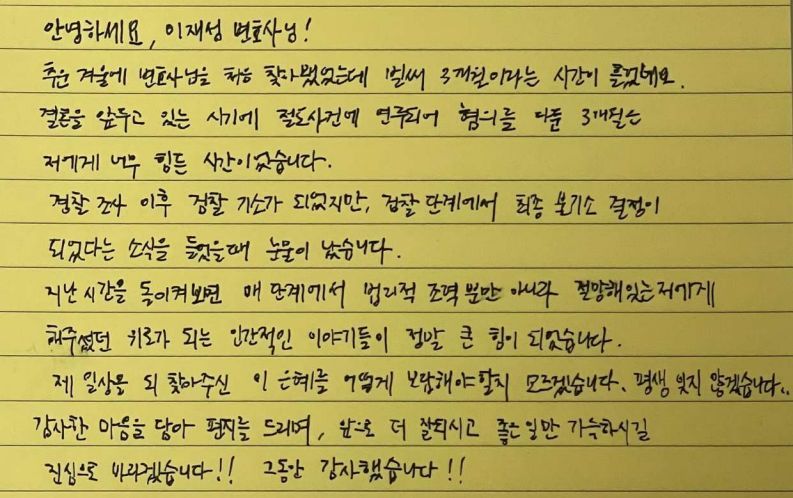 안녕하세요, 이재성 변호사님!
추운 겨울에 변호사님을 처음 찾아뵀었는데 벌써 3개월이라는 시간이 흘렀네요.
결혼을 앞두고 있는 시기에 절도사건에 연루되어 혐의를 다툰 3개월은
저에게 너무 힘든 시간이었습니다.
경찰 조사 이후 검찰 기소가 되었지만, 검찰 단계에서 최종 불기소 결정이
되었다는 소식을 들었을때 눈물이 났습니다.
지난 시간을 돌이켜보면 매 단계에서 법리적 조력 뿐만 아니라 절망해있는 저에게
해주셨던 위로가 되는 인간적인 이야기들이 정말 큰 힘이 되었습니다.
제 일상을 되 찾아주신 이 은혜를 어떻게 보답해야할지 모르겠습니다. 평생 잊지 않겠습니다..
감사한 마음을 담아 편지를 드리며, 앞으로 더 잘되시고 좋은 일만 가득하시길
진심으로 바라겠습니다!! 그동안 감사했습니다!!